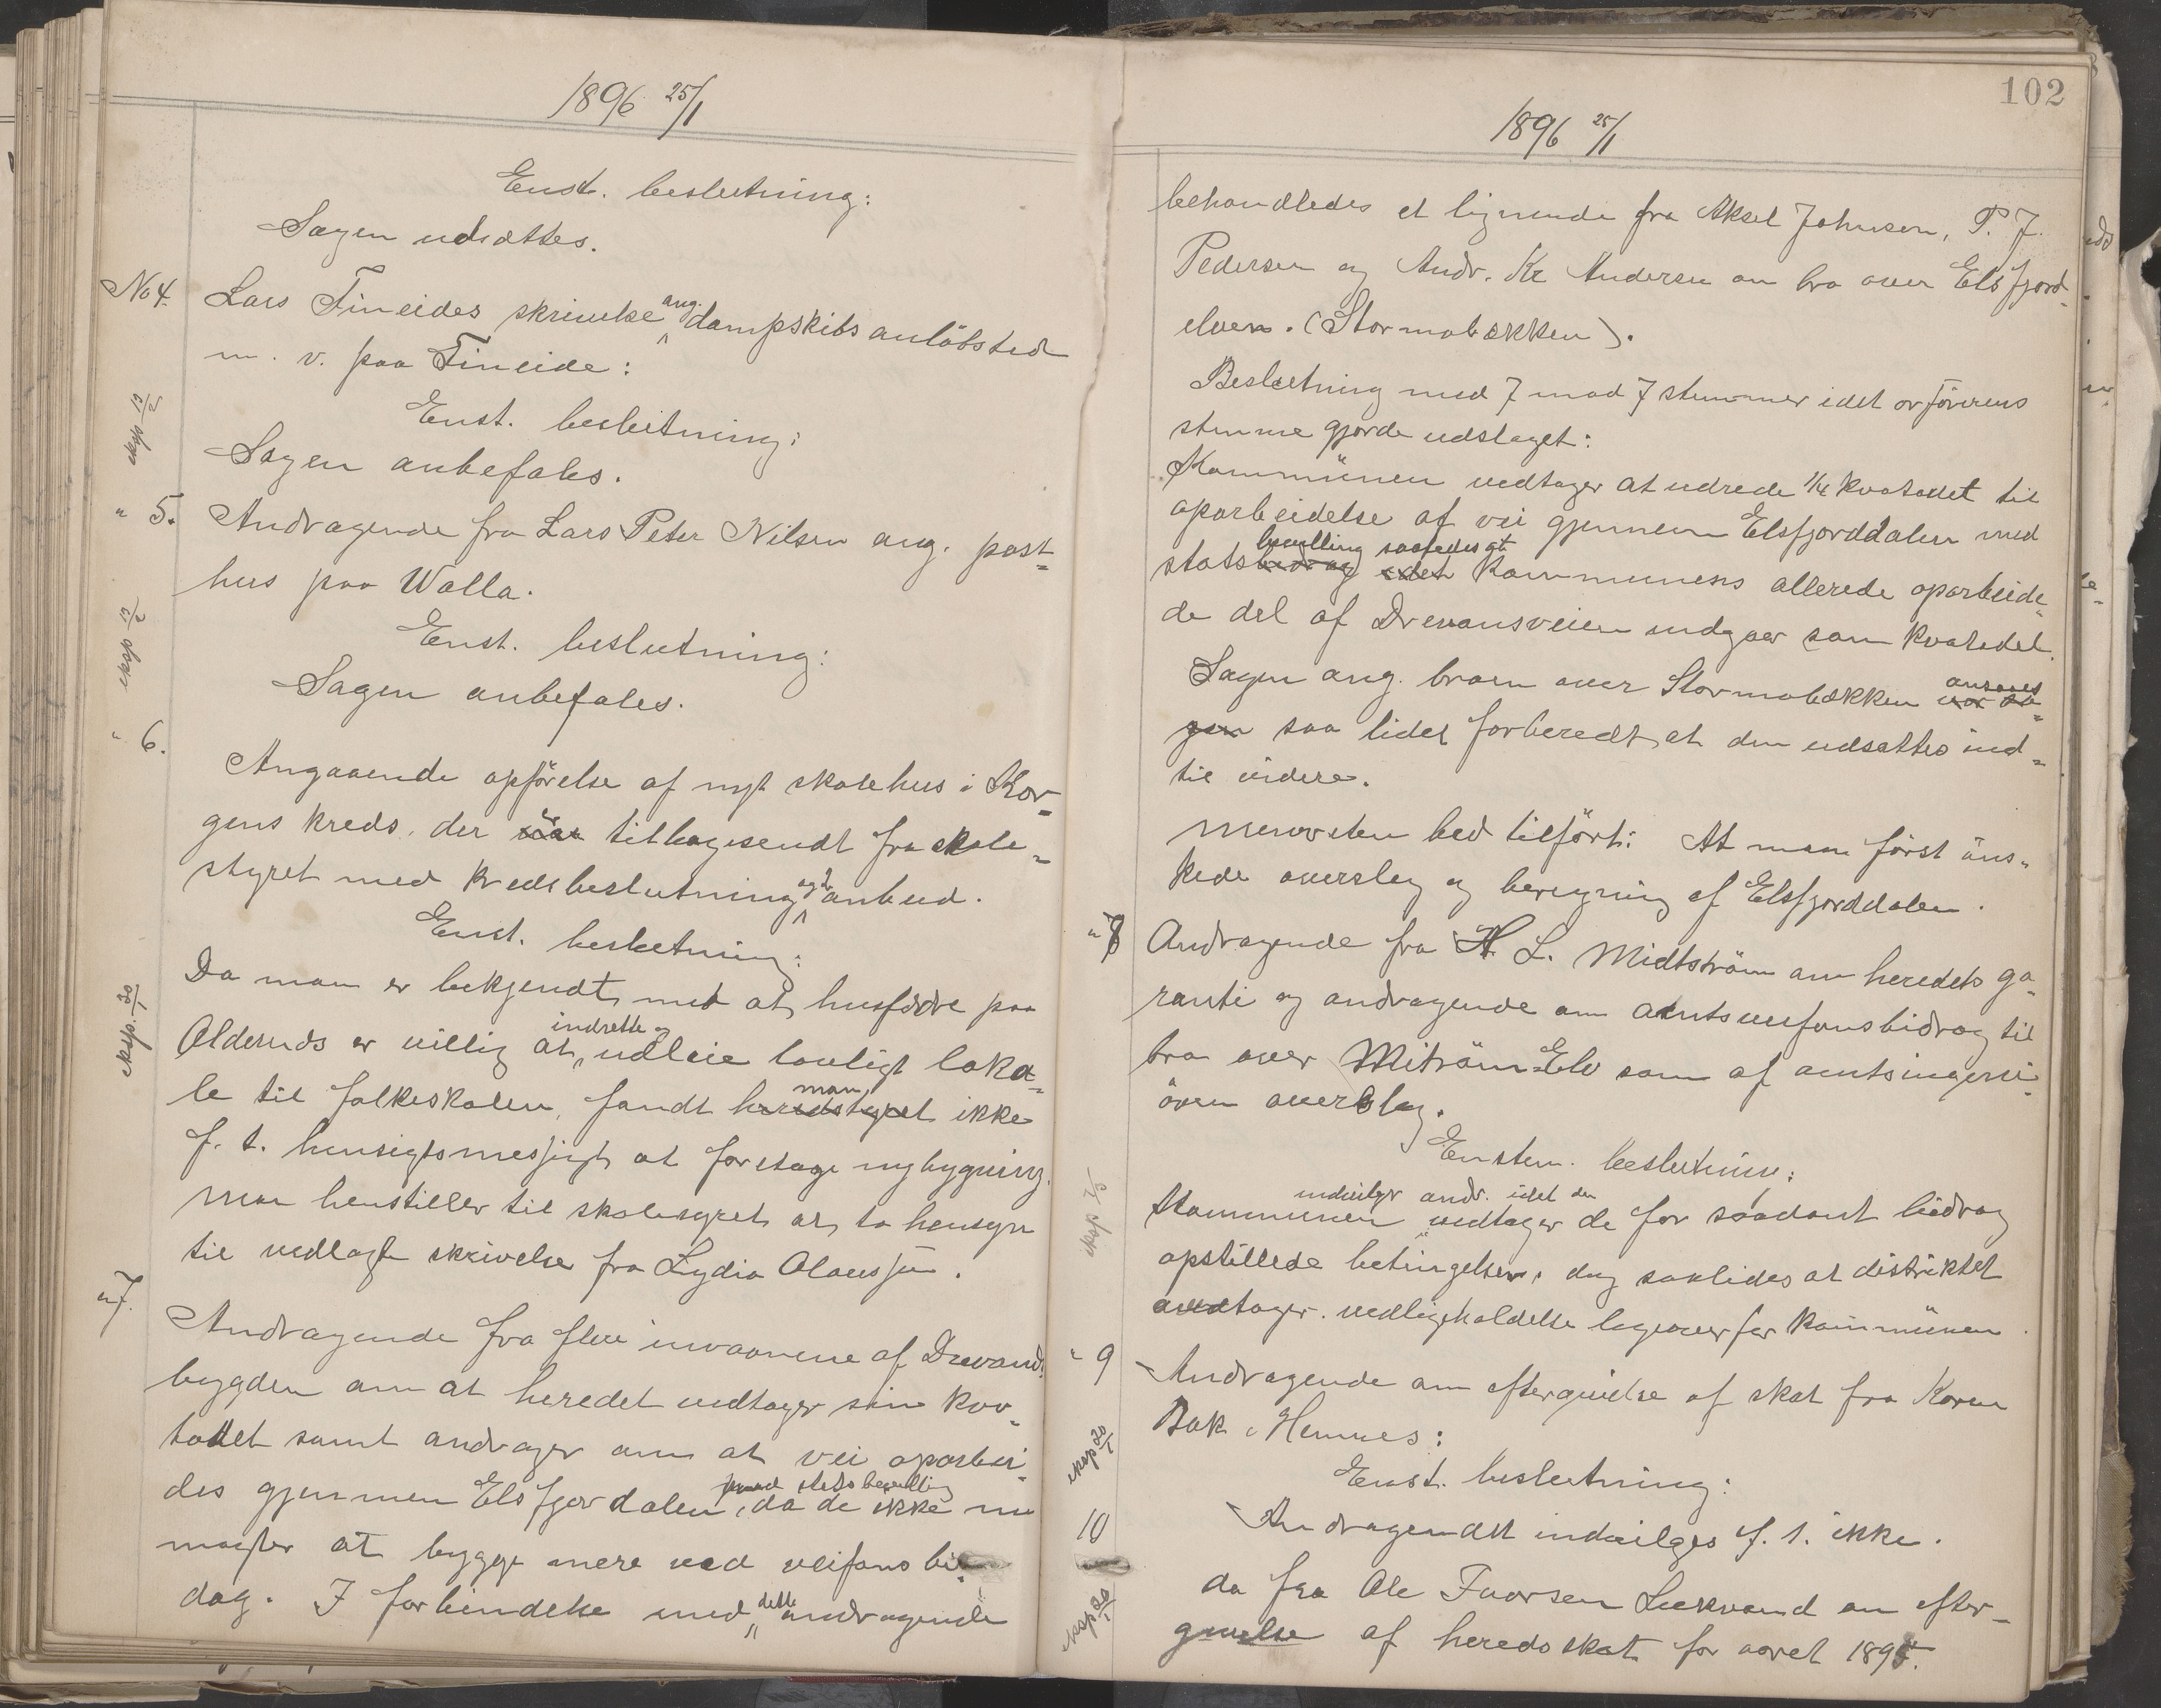 1896 25/1
Enst. beslutning:
Sagen udsættes.
No 4. Lars Fineides skrivelse ang. dampskibsanløbsted
m. v. paa Fineide:
Enst. beslutning:
eksp 13/2
Sagen anbefales.
" 5. Andragende fra Lars Peter Nilsen ang. post-
hus paa Walla.
eksp 13/2
Enst. beslutning:
Sagen anbefales.
" 6.
Angaaende opförelse af nyt skolehus i Kor-
gens kreds, der var tilbagesendt fra skole-
styret med kredsbeslutning og anbud.
Enst. beslutning:
eksp. 30/1
Da man er bekjendt med at husfædre paa
Oldernes er villig at indrette og udleie lovligt loka-
le til folkeskolen, fandt herredstyret man ikke
f. t. hensigtsmessigt at foretage nybygning.
Man henstiller til skolestyret at ta hensyn
til vedlagte skrivelse fra Lydia Olaussen.
" 7.
Andragende fra flere invaanere af Drevands-
bygden om at heredet vedtager sin kvo-
tadel samt andrager om at vei oparbei-
des gjennem Elsfjordalen, mod statsbevilling da de ikke nu
magter at bygge mere ved veifonsbi-
drag. I forbindelse med dette andragende
102
1896 25/1
behandledes et lignende fra Aksel Johnsen, P. J.
Pedersen og Andr. Kr Andersen om bro over Elsfjord-
elven. (Stormobækken).
Beslutning med 7 mod 7 stemmer idet ordförerens
stemme gjorde udslaget:
Kommünen vedtager at udrede 1/4 kvotadel til
oparbeidelse af vei gjennem Elsfjorddalen med
statsbidrag bevilling saaledes at idet kommunens allerede oparbeide-
de del af Drevansveien indgaar som kvotedel.
Sagen ang. broen over Stormobækken var sa- ansees
gen saa lidet forberedt, at den udsættes ind-
til videre.
Mevosten bed tilfört: At man först öns-
kede overslag og beregning af Elsfjorddalen.
" 8 Andragende fra H. L. Midtström om heredets ga-
ranti og andragende om amtsveifonsbidrag til
bro over Miström Elv som af amtsingeni-
ören overslag.
Enstem. beslutning:
eksp 7/2
Kommunen indvilger andr. idet den vedtager de for saadant bidrag
opstillede betingelser, dog saaledes at distriktet
overtager vedligeholdelse ligeover for kommünen.
" 9 Andragende om eftergivelse af skat fra Karen
Bak, Hemnes:
eksp 30/1
Enst. beslutning:
Andragendet indvilges f. t. ikke.
10
eksp 30/1
do fra Ole Ivarsen Lukvand om efter-
givelse af heredsskat for aaret 1895.